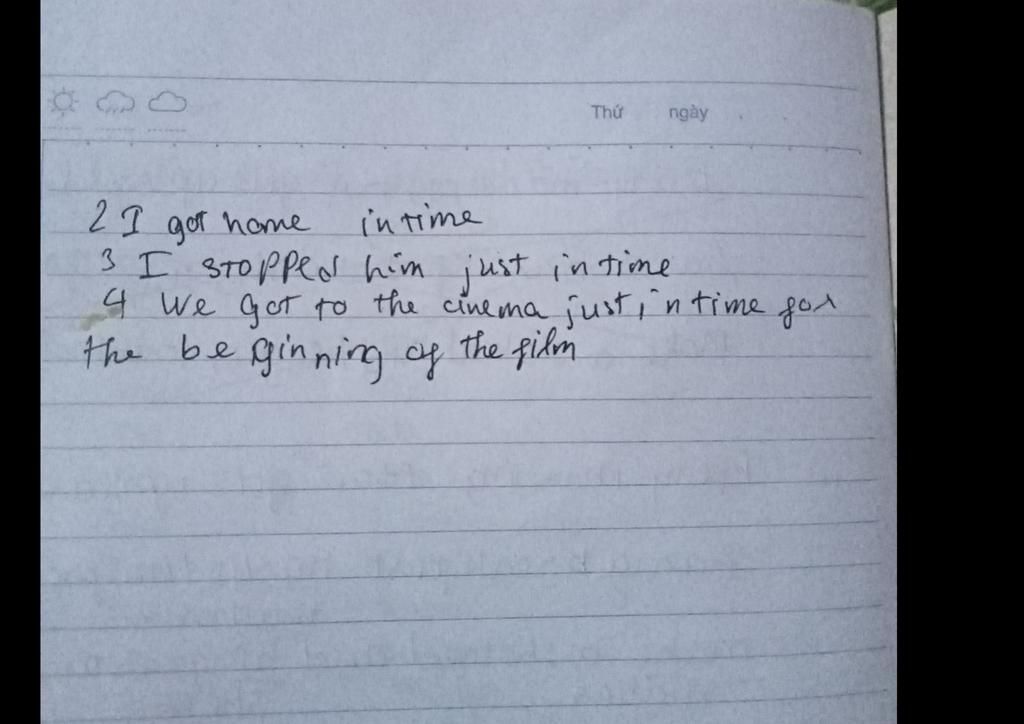 Thứ ngày
2 I got home in time
3 I stopped him just in time
4 We got to the cinema just in time for
the beginning of the film